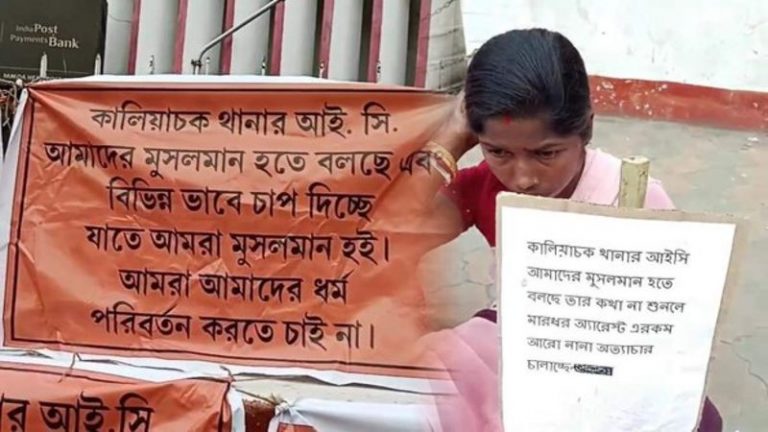 India Post
Payments Bank
কালিয়াচক থানার আই. সি.
আমাদের মুসলমান হতে বলছে এবং
বিভিন্ন ভাবে চাপ দিচ্ছে
যাতে আমরা মুসলমান হই।
আমরা আমাদের ধর্ম
পরিবর্তন করতে চাই না।
আই. সি
কালিয়াচক থানার আইসি
আমাদের মুসলমান হতে
বলছে তার কথা না শুনলে
মারধর অ্যারেস্ট এরকম
আরো নানা অত্যাচার
চালাচ্ছে